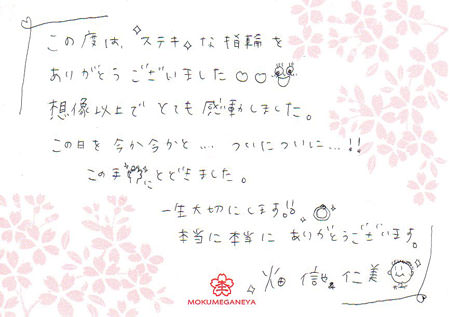 この度は、ステキな指輪を
ありがとうございました
想像以上で とても 感動しました。
この日を 今か今かと… ついについに…!!
この手にとどきました。
一生大切にします!!
本当に本当に ありがとうございます。
畑 信 仁美
MOKUMEGANEYA